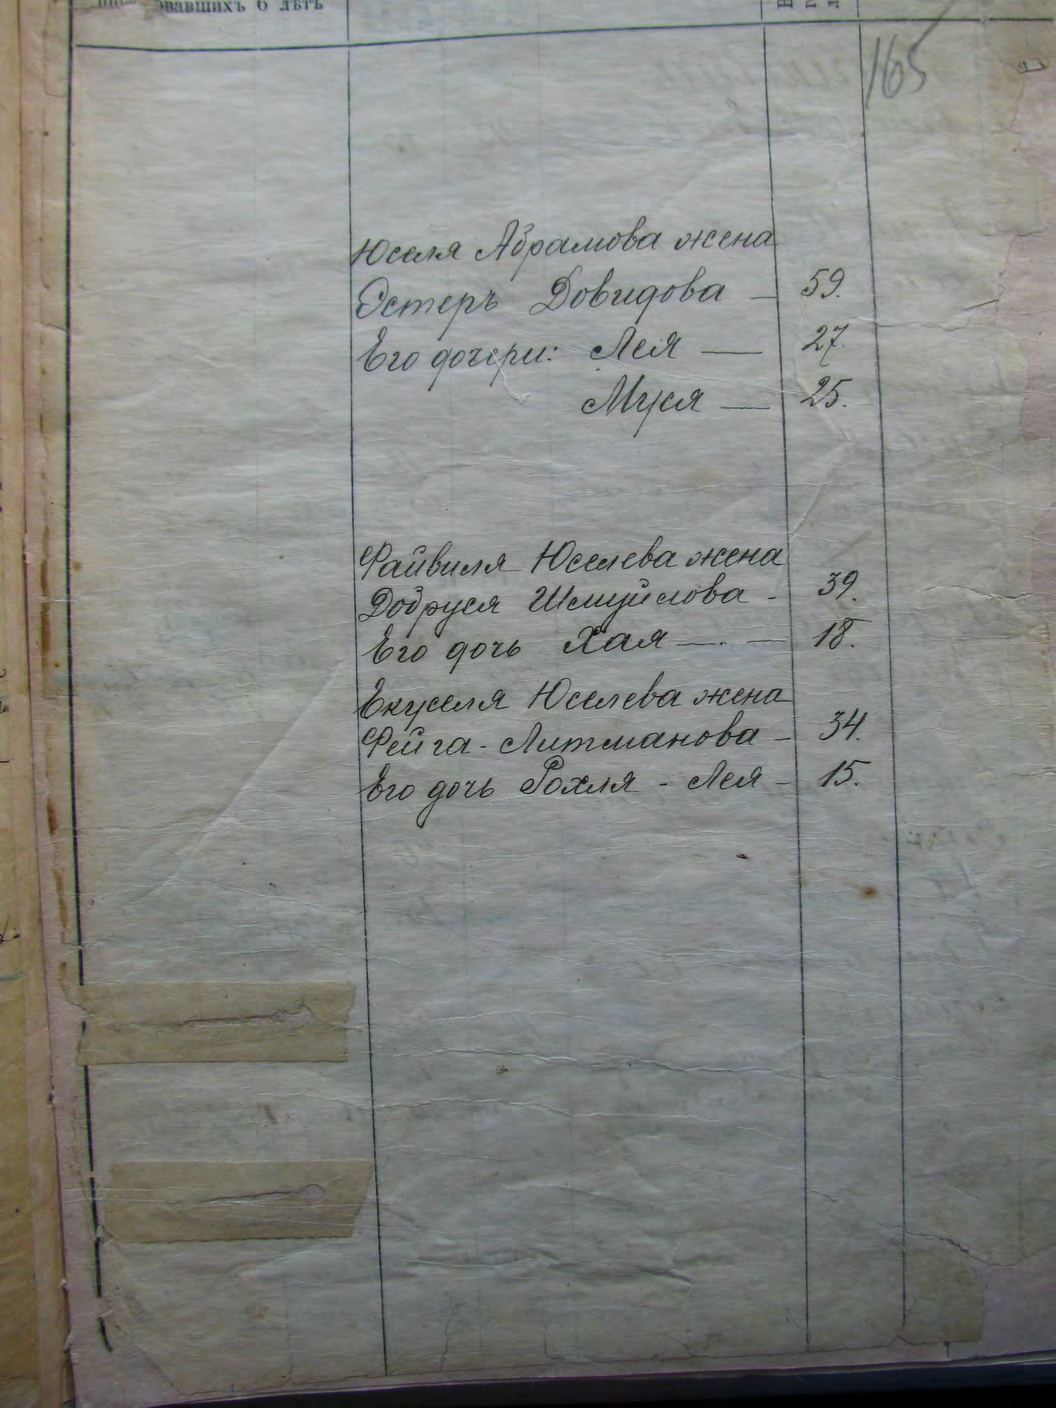 6 лѣтъ
165
Юселя Абрамова жена
Эстеръ Довидова — 59.
Его дочери: Лея — 27.
Муся — 25.
Файвиля Юселева жена
Добруся Шмуйлова - 39.
Его дочь Хая — 18.
Екуселя Юселева жена
Фейга - Литманова - 34.
Его дочь Рохля - Лея - 15.